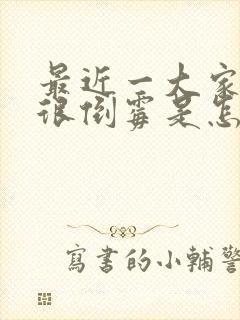 最近一大家
很倒霉是怎
寫書的小輔警